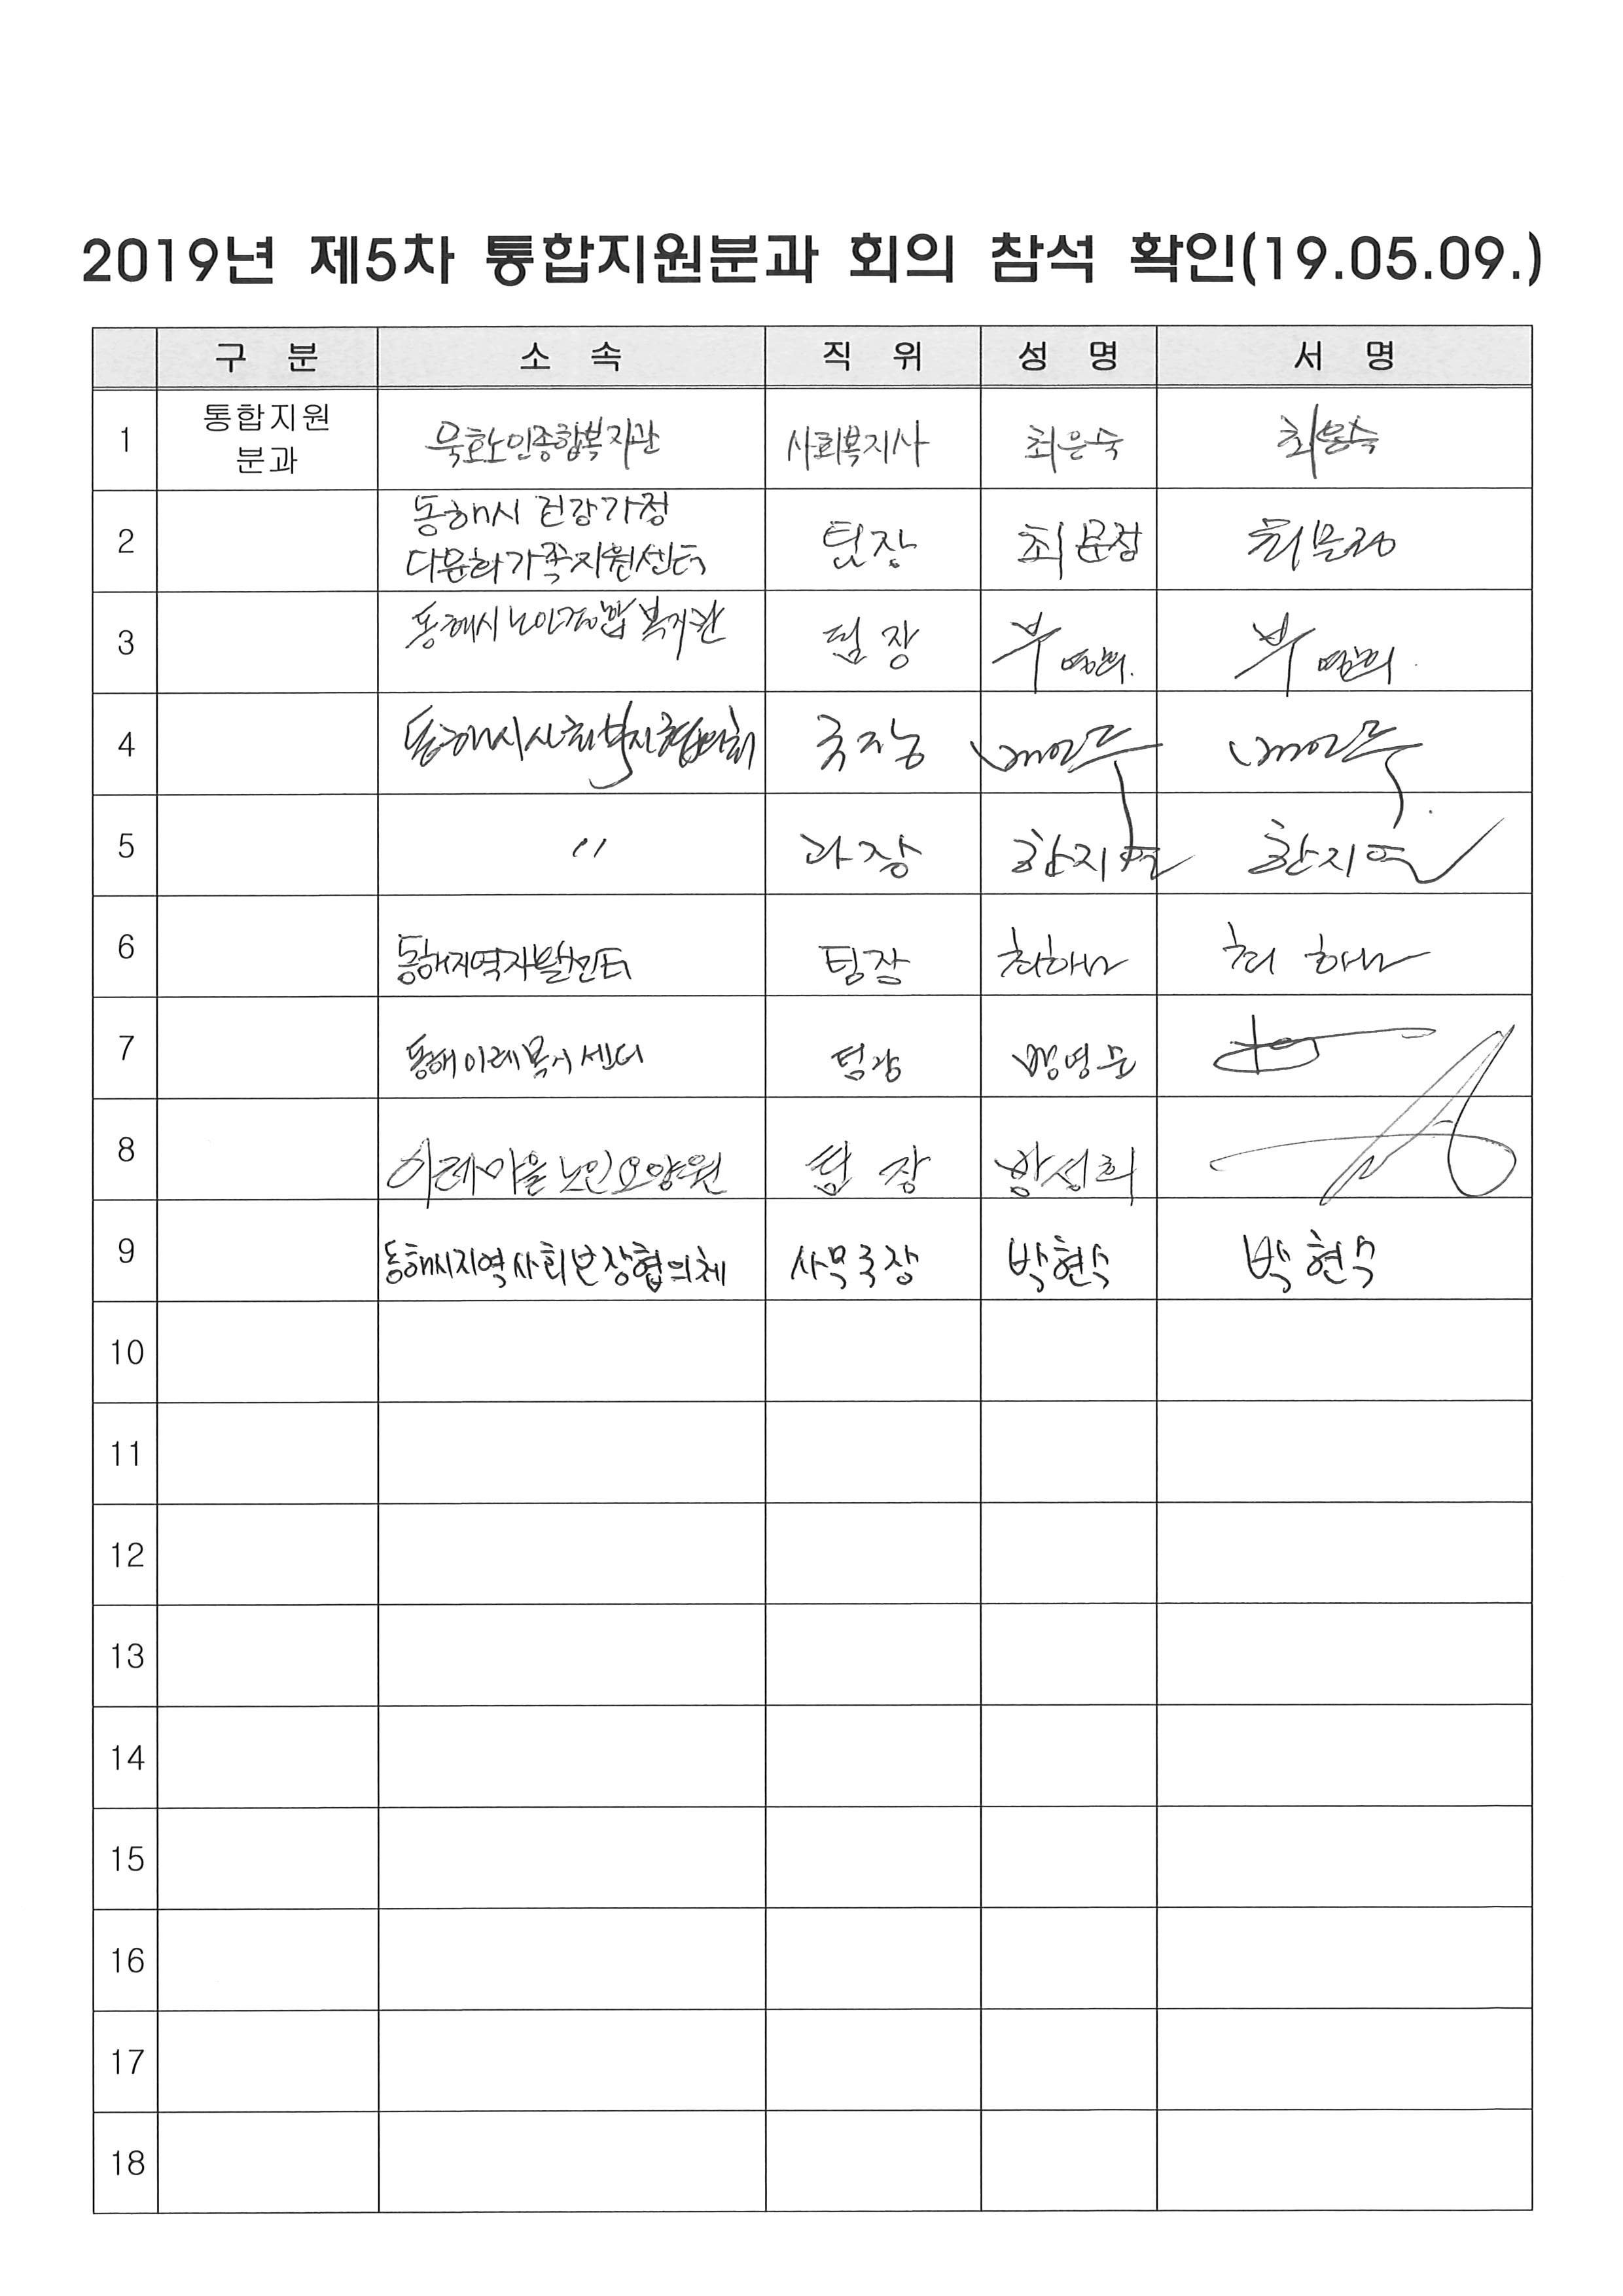 2019년 제5차 통합지원분과 회의 참석 확인(19.05.09.)
구 분 소 속 직 위 성 명 서 명
1 통합지원 분과 묵호노인종합복지관 사회복지사 최은숙 최은숙
2 동해시 건강가정 다문화가족지원센터 팀장 최문정 최문정
3 동해시노인종합복지관 팀장 부 부
4 동해시사회복지협의회 국장
5 〃 과장 한지연 한지연
6 동해지역자활센터 팀장 최하나 최하나
7 동해이레복지센터 팀장
8 이레마을노인요양원 팀장 황성희
9 동해시지역사회보장협의체 사무국장 박현수 박현수
10
11
12
13
14
15
16
17
18